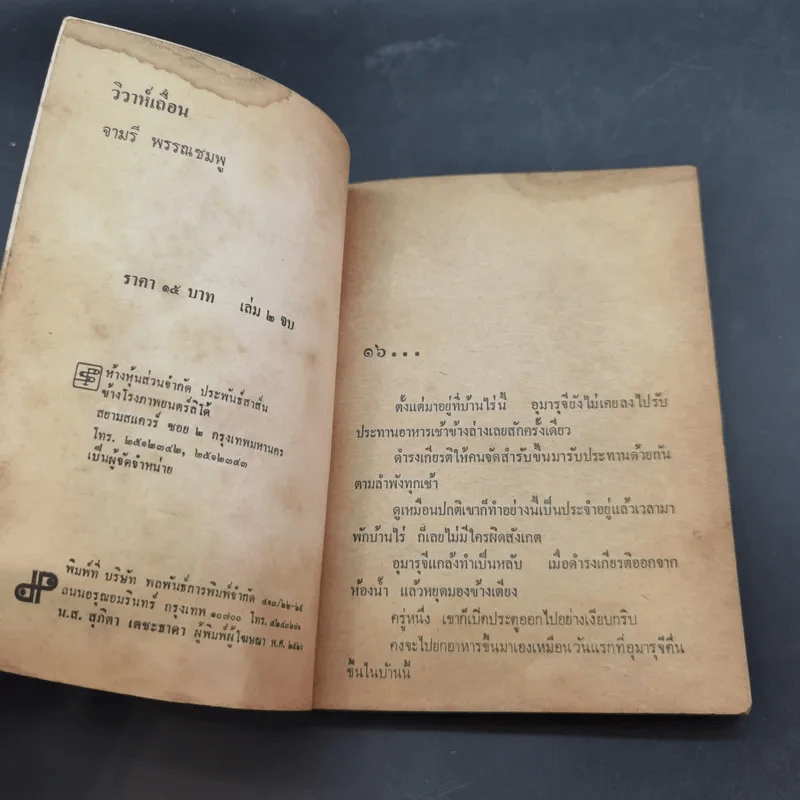 วิวาห์เถื่อน
จามรี พรรณชมพู
ราคา ๑๕ บาท เล่ม ๒ จบ
ห้างหุ้นส่วนจำกัด ประพันธ์สาส์น
ข้างโรงภาพยนตร์ลิโด้
สยามสแควร์ ซอย ๒ กรุงเทพมหานคร
โทร. ๒๕๑๒๓๔๒, ๒๕๑๒๓๔๓
เป็นผู้จัดจำหน่าย
พิมพ์ที่ บริษัท พลพันธ์การพิมพ์จำกัด ๔๑๓/๒๒-๒๕
ถนนอรุณอมรินทร์ กรุงเทพ ๑๐๗๐๐ โทร.
น.ส. สุภิตา เตชะธาดา ผู้พิมพ์ผู้โฆษณา พ.ศ. ๒๕๒๑
๑๖...
ตั้งแต่มาอยู่ที่บ้านไร่นี้ อุมารุจียังไม่เคยลงไปรับ
ประทานอาหารเช้าข้างล่างเลยสักครั้งเดียว
ดำรงเกียรติให้คนจัดสำรับขึ้นมารับประทานด้วยกัน
ตามลำพังทุกเช้า
ดูเหมือนปกติเขาก็ทำอย่างนี้เป็นประจำอยู่แล้วเวลามา
พักบ้านไร่ ก็เลยไม่มีใครผิดสังเกต
อุมารุจีแกล้งทำเป็นหลับ เมื่อดำรงเกียรติออกจาก
ห้องน้ำ แล้วหยุดมองข้างเตียง
ครู่หนึ่ง เขาก็เปิดประตูออกไปอย่างเงียบกริบ
คงจะไปยกอาหารขึ้นมาเองเหมือนวันแรกที่อุมารุจีตื่น
ขึ้นในบ้านนี้